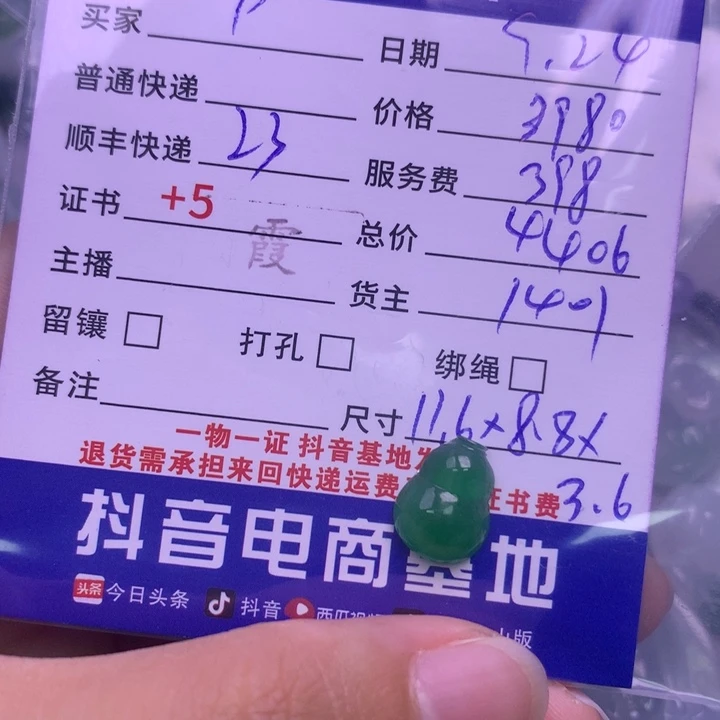 买家
日期 5.24
普通快递
价格 3980
顺丰快递 23
服务费 398
证书 +5
总价 4406
霞
主播
货主 1401
留镶 □ 打孔 □ 绑绳 □
备注
尺寸 11.6×8.8×
3.6
一物一证 抖音基地
退货需承担来回快递运费 证书费
抖音电商基地
头条 今日头条 抖音 西瓜视频